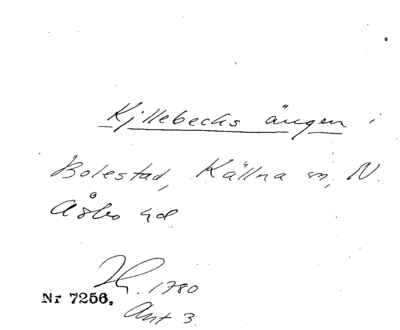 Kjllebecks ängen i
Bolestad, Källna sn, N.
Åsbo hd
1780
Nr 7256.
Ant 3.